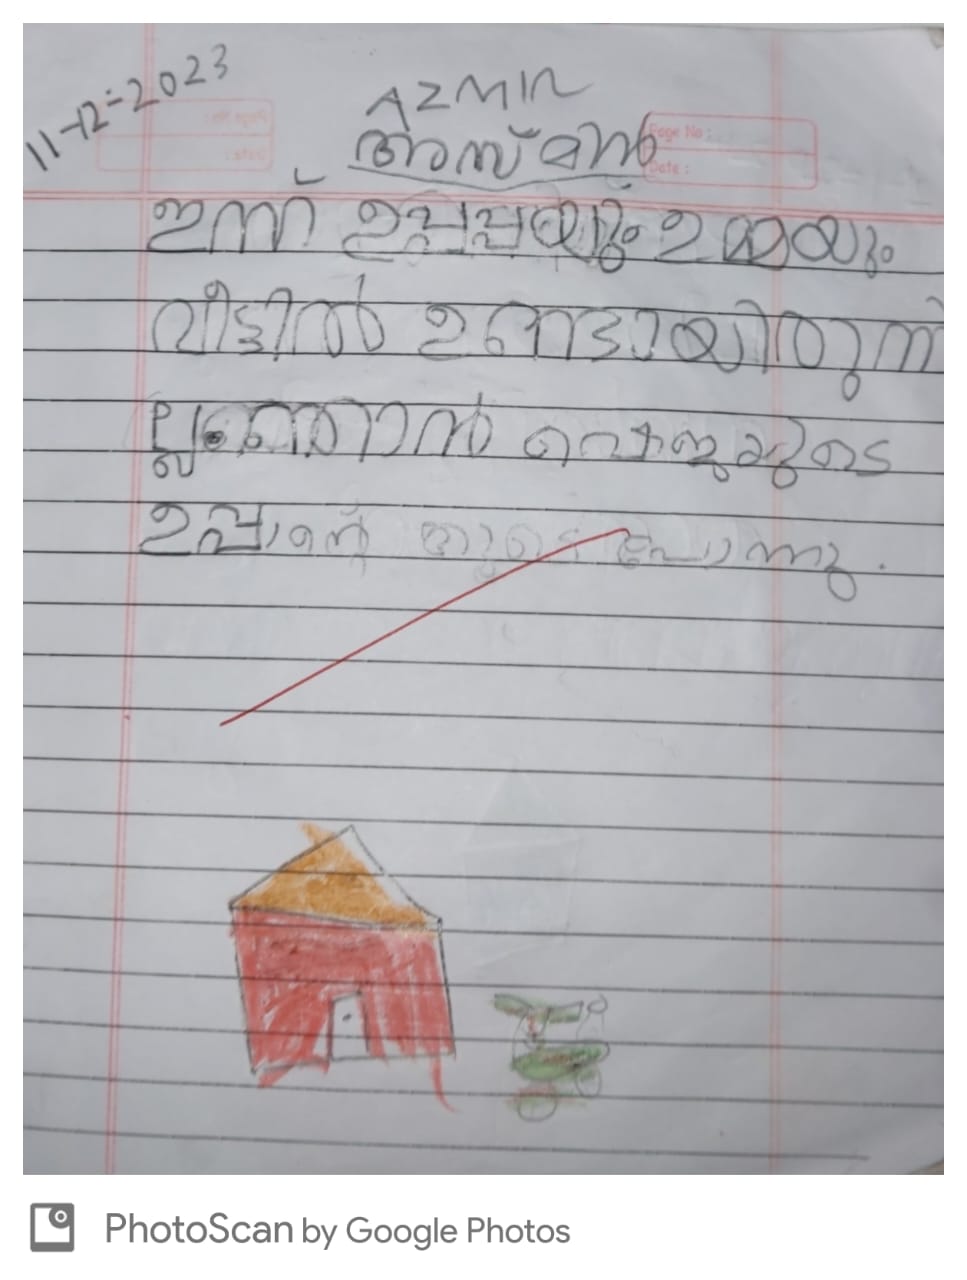 11-12-2023
AZMIN
അസ്മിൻ
Page No :
Date :
ഇന്ന് ഉപ്പപ്പയും ഉമ്മയും
വീട്ടിൽ ഉണ്ടായിരുന്ന
ല്ല ഞാൻ
ഉപ്പാന്റെ കൂടെ പോന്നു.
PhotoScan by Google Photos